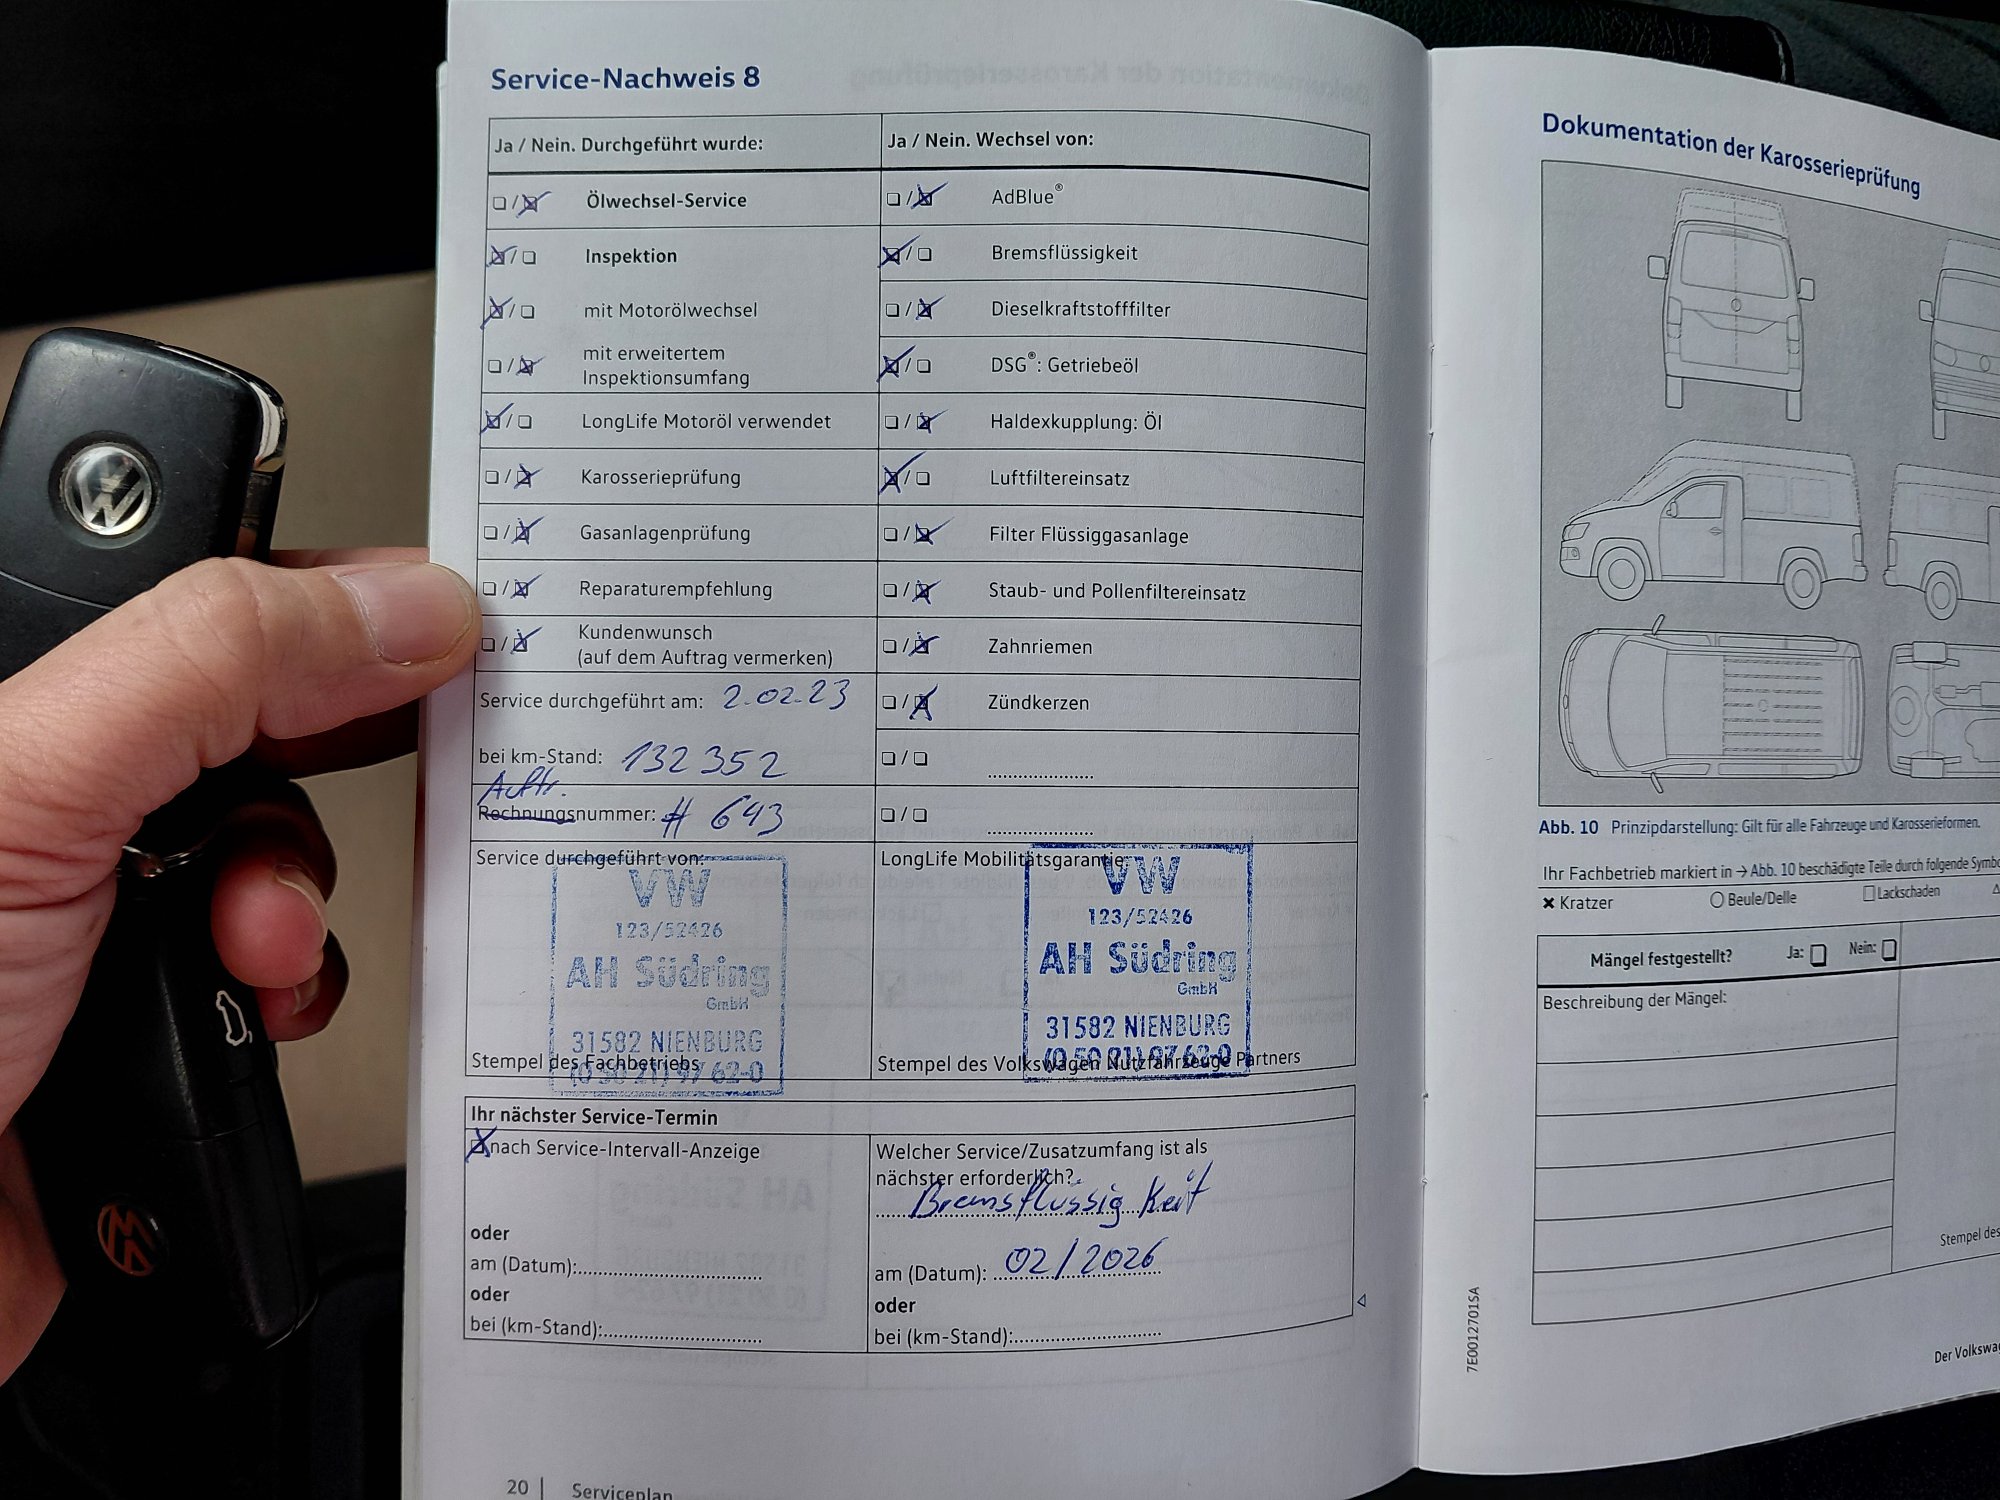 Service-Nachweis 8
Ja / Nein. Durchgeführt wurde:
Ölwechsel-Service
Inspektion
mit Motorölwechsel
mit erweitertem
Inspektionsumfang
LongLife Motoröl verwendet
Karosserieprüfung
Gasanlagenprüfung
Reparaturempfehlung
Kundenwunsch
(auf dem Auftrag vermerken)
Service durchgeführt am: 2.02.23
bei km-Stand: 132 352
Auftr.
Rechnungsnummer: # 643
Service durchgeführt von:
VW
123/52426
AH Südring
GmbH
31582 NIENBURG
(0 50 21) 97 62-0
Stempel des Fachbetriebs
Ja / Nein. Wechsel von:
AdBlue®
Bremsflüssigkeit
Dieselkraftstofffilter
DSG®: Getriebeöl
Haldexkupplung: Öl
Luftfiltereinsatz
Filter Flüssiggasanlage
Staub- und Pollenfiltereinsatz
Zahnriemen
Zündkerzen
LongLife Mobilitätsgarantie:
VW
123/52426
AH Südring
GmbH
31582 NIENBURG
(0 50 21) 97 62-0
Stempel des Volkswagen Nutzfahrzeuge Partners
Ihr nächster Service-Termin
nach Service-Intervall-Anzeige
oder
am (Datum):
oder
bei (km-Stand):
Welcher Service/Zusatzumfang ist als
nächster erforderlich?
Bremsflüssigkeit
am (Datum): 02/2026
oder
bei (km-Stand):
20 | Serviceplan
Dokumentation der Karosserieprüfung
Abb. 10 Prinzipdarstellung: Gilt für alle Fahrzeuge und Karosserieformen.
Ihr Fachbetrieb markiert in → Abb. 10 beschädigte Teile durch folgende Symbo
Kratzer
Beule/Delle
Lackschaden
Mängel festgestellt? Ja: Nein:
Beschreibung der Mängel:
Stempel des
7E0012701SA
Der Volkswag